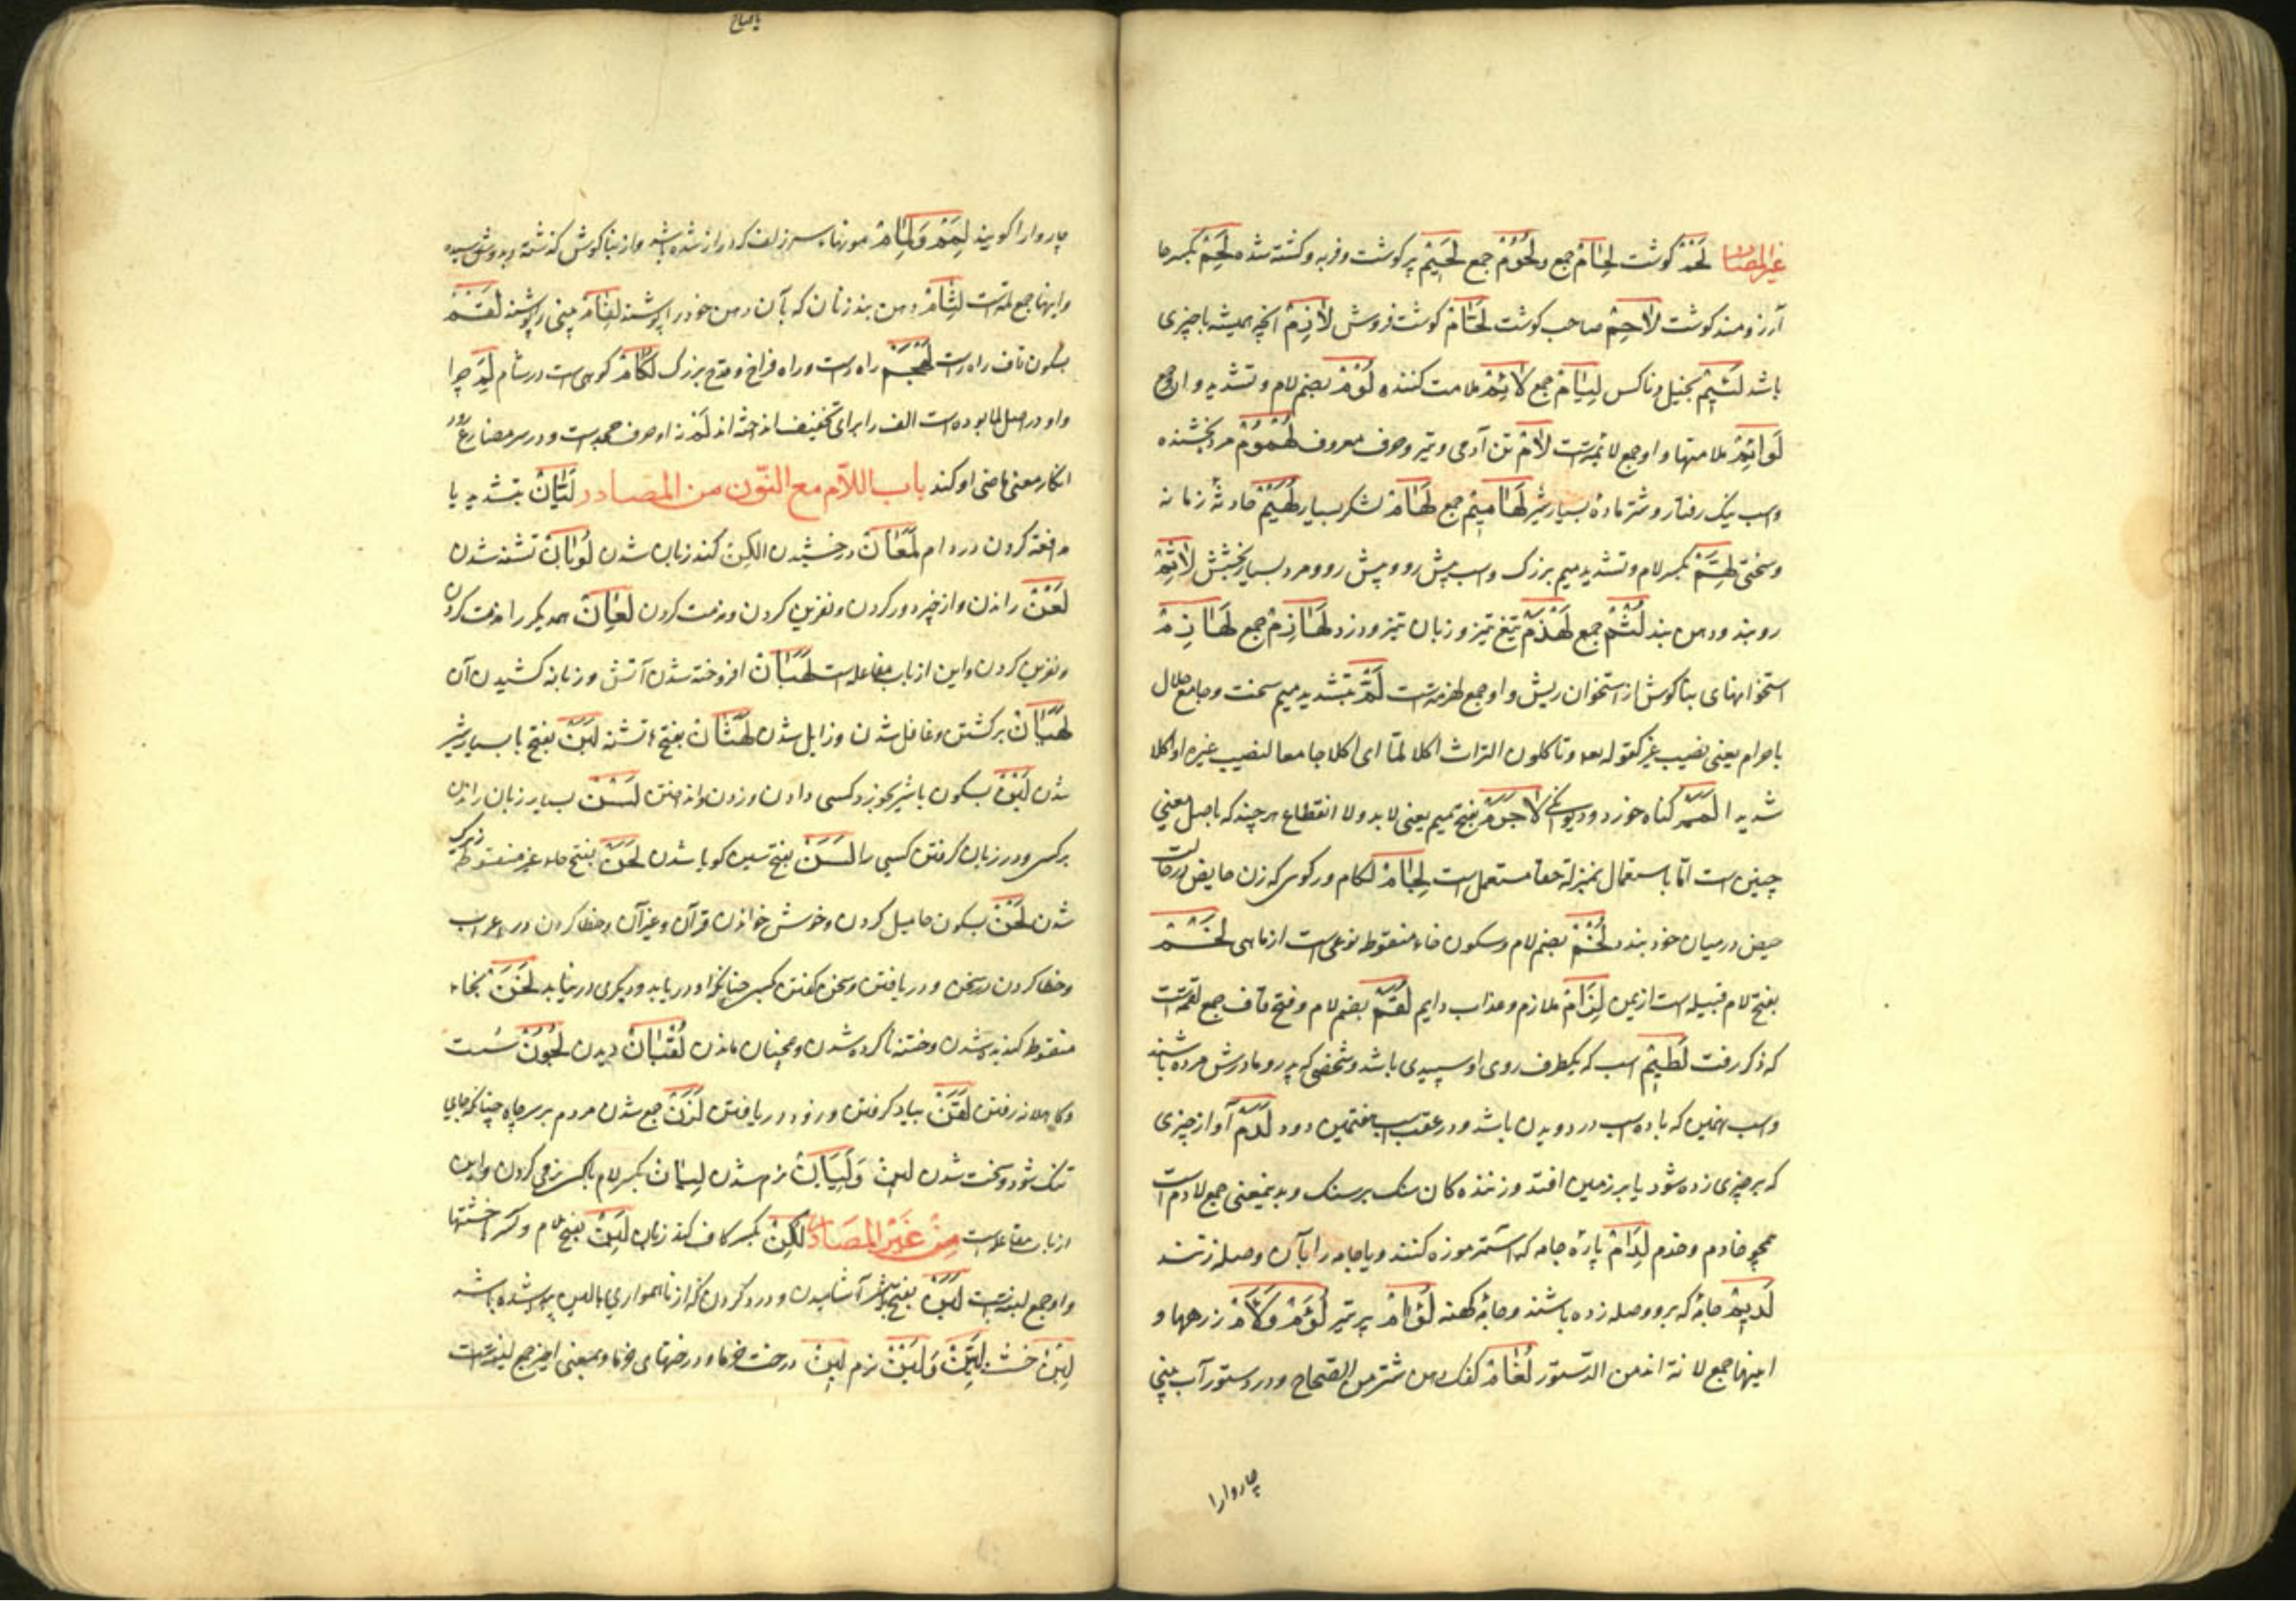 غیر المصادر لَحْمْ کوشت لِحَامْ جمع و لُحُوْمْ جمع لَحِیْمْ پر کوشت و فربه و کشته شده لَحِمْ بکسر حا
آرزومند کوشت لَاحِمْ صاحب کوشت لَحَّامْ کوشت فروش لَازِمْ انچه همیشه باچیزی
باشد لَئِیْمْ بخیل و ناکس لِیَامْ جمع لَائِمْ ملامت کننده لُوَّمْ بضم لام و تشدید واو جمع
لَوَائِمْ ملامتها و او جمع لائمه است لَامْ تن آدمی و تیر و حرف معروف لُهْمُوْمْ مرد بخشنده
و اسب نیک رفتار و شتر ماده بسیار شیر لَهَامِیْمْ جمع لُهَامْ لشکر بسیار لُهَیْمْ حادثهٔ زمانه
و سختی لِهَمّْ بکسر لام و تشدید میم بزرک و اسب پیش رو و پیش رو و مرد بسیار بخشش لِثَامْ
روبند و دهن بند لُثُمْ جمع لَهْذَمْ تیغ تیز و زبان تیز و دزد لَهَاذِمْ جمع لَهَازِمْ
استخوانهای بناکوش از استخوان ریش و او جمع لهزمه است لَمّْ بتشدید میم سخت و جامع حلال
باحرام یعنی نصیب غیر کقوله تعه وتاکلون التراث اکلا لمّا ای اکلا جامعا لنصیب غیره او اکلا
شدیدا لَمَمْ کناه خورد و دیوانکی لَاجَرَمْ بفتح میم یعنی لابد ولا انقطاع هرچند که باصل معنی
چنین است امّا باستعمال بمنزله حقا مستعمل است لِجَامْ لکام و رکوی که زن حایض در حالت
حیض در میان خود بندد لُخْمْ بضم لام و سکون خاء منقوطه نوعی است از ماهی لَخْمْ
بفتح لام قبیله است از یمن لِزَامْ ملازم و عذاب دایم لُقَمْ بضم لام و فتح قاف جمع لقمه است
که ذکر رفت لَطِیْمْ اسب که یکطرف روی او سپیدی باشد و شخصی که پدر و مادرش مرده باشند
و اسب نهمین که با ده اسب در دویدن باشد و در عقب اسب هشتمین دود لَدْمْ آواز چیزی
که بر چیزی زده شود یا بر زمین افتد و زننده کان سنک بر سنک و بدینمعنی جمع لادم است
همچو خادم و خدم لِدَامْ پارهٔ جامه که استر موزه کنند و یا جامه را بآن وصله زنند
لَدِیْمْ جامهٔ که برو وصله زده باشند و جامهٔ کهنه لُؤَامْ پر تیر لُؤَمْ وَلَأْمْ زرهها و
اینها جمع لامة اند من الدّستور لُغَامْ کفک دهن شتر من الصحاح و در دستور آب بینی
چاروا را
چاروا را کویند لِمَمْ وَلِمَامْ مورنها سر زلف که دراز شده باشد و از بناکوش کذشته و بدوش رسیده
و اینها جمع لمّه است لِثَامْ دهن بند زنان که بآن دهن خود را پوشند لِفَامْ بینی را پوشند لَقَمْ
بسکون قاف راه راست لَهْجَمْ راه راست و راه فراخ و قدح بزرک لُکَامْ کوهی است در شام لِمَ چرا
و او در اصل لما بوده است الف را برای تخفیف انداخته اند لَمْ نه او حرف جحد است و در سر مضارع در رود
انکار معنی ماضی او کند باب اللّام مع النّون من المصادر لَیَّانْ بتشدید یا
مدافعه کردن در وام لَمَعَانْ درخشیدن اللکن کند زبان شدن لُوْبَانْ تشنه شدن
لَعْنْ راندن و از خیر دور کردن و نفرین کردن و مذمت کردن لِعَانْ همدیکر را مذمت کردن
و نفرین کردن و این از باب مفاعله است لَهَبَانْ افروخته شدن آتش و زبانه کشیدن آن
لُهْیَانْ برکشتن و غافل شدن و زایل شدن لَهَثَانْ بفتح ها تشنه لَبَنْ بفتح با بسیار شیر
شدن لَبْنْ بسکون با شیر بخورد کسی دادن و زدن و انداختن لَسْنْ بسیار زبان راندن
بر کسی و در زبان کرفتن کسی را لَسَنْ بفتح سین کویا شدن لَحَنْ بفتح حاء غیر منقوطه زیرک
شدن لَحْنْ بسکون حا میل کردن و خوش خواندن قرآن و غیر آن و خطا کردن در اعراب
و خطا کردن در سخن و دریافتن و سخن کفتن بکسی چنانکه او دریابد و دیکری درنیابد لَخَنْ بخاء
منقوطه کندیده شدن و ختنه ناکرده شدن و همچنان ماندن لُقْیَانْ دیدن لُجُوْنْ سست
و کاهلانه رفتن لَقَنْ بیاد کرفتن و زود دریافتن لَزَنْ جمع شدن مردم بر سر چاه چنانکه جای
تنک شود و سخت شدن لین وَلَیَانْ نرم شدن لِیَانْ بکسر لام باکسی نرمی کردن و این
از باب مفاعله است مِنْ غَیْرِ المَصَادِر لَکِنْ بکسر کاف کند زبان لَبِنْ بفتح لام و کسر با خشتها
و او جمع لبنه است لَبَنْ بفتح با شیر آشامیدن و درد کردن کردن از ناهمواری بالین پدید شده باشد
لِبْنْ خشت لَیِّنْ وَلَیْنْ نرم لِینْ درخت خرما و درختهای خرما و بمعنی اخیر جمع لینه است